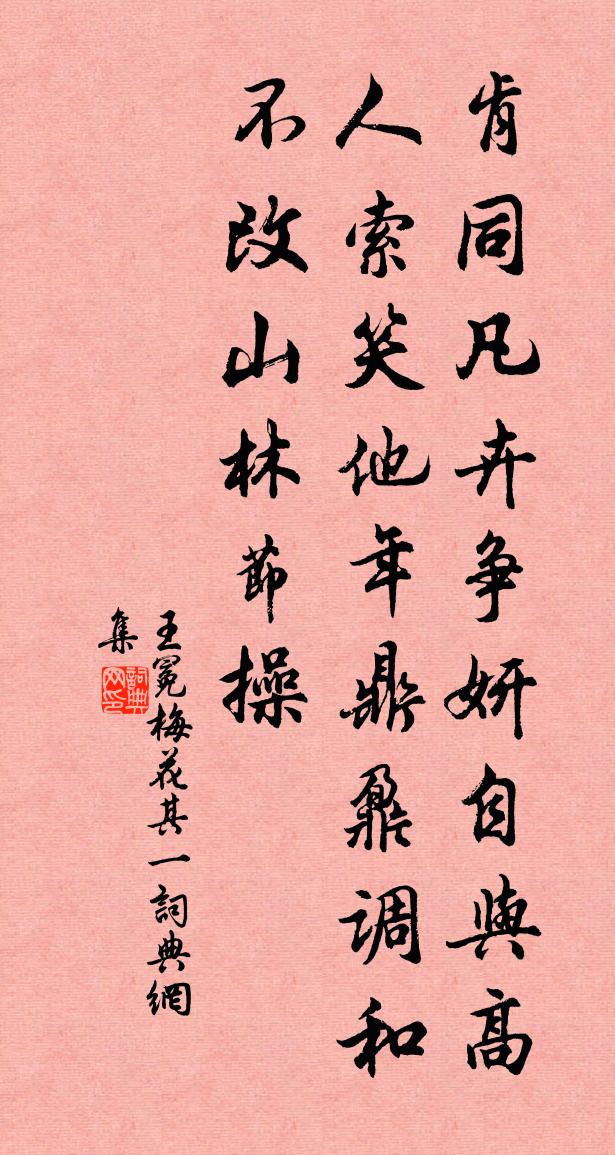 肯同凡卉争妍自與高
人索笑他年鼎鼐调和
不改山林節操
王冕梅花其一詞典網
集
詞典网印